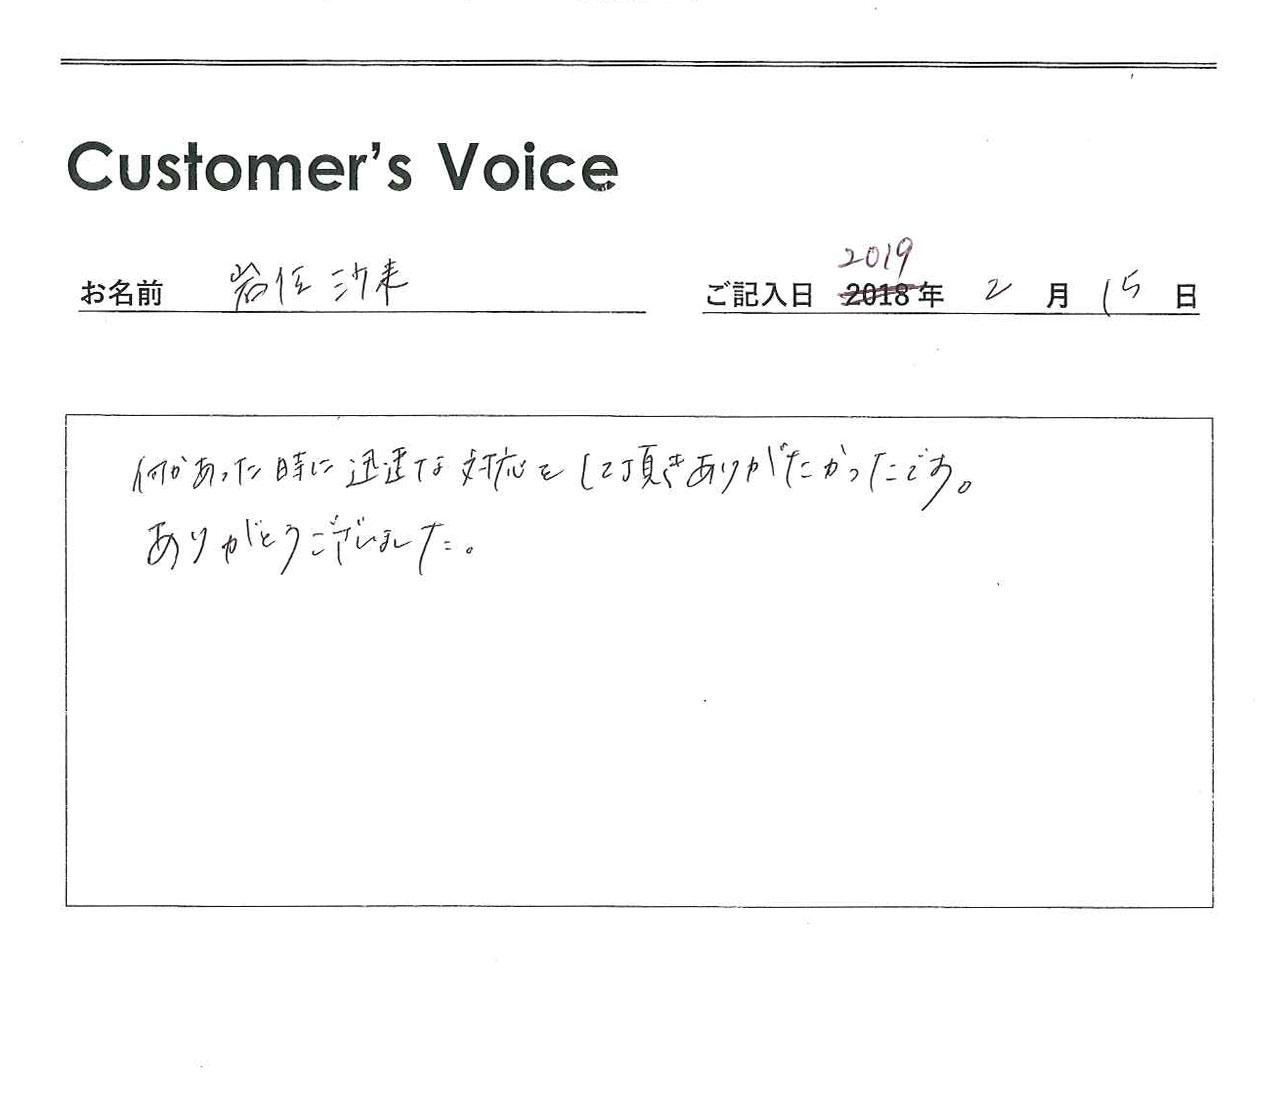 Customer's Voice
お名前 岩佐 沙来
2019
ご記入日 2018年 2月 15日
何かあった時に迅速な対応をして頂きありがたかったです。
ありがとうございました。